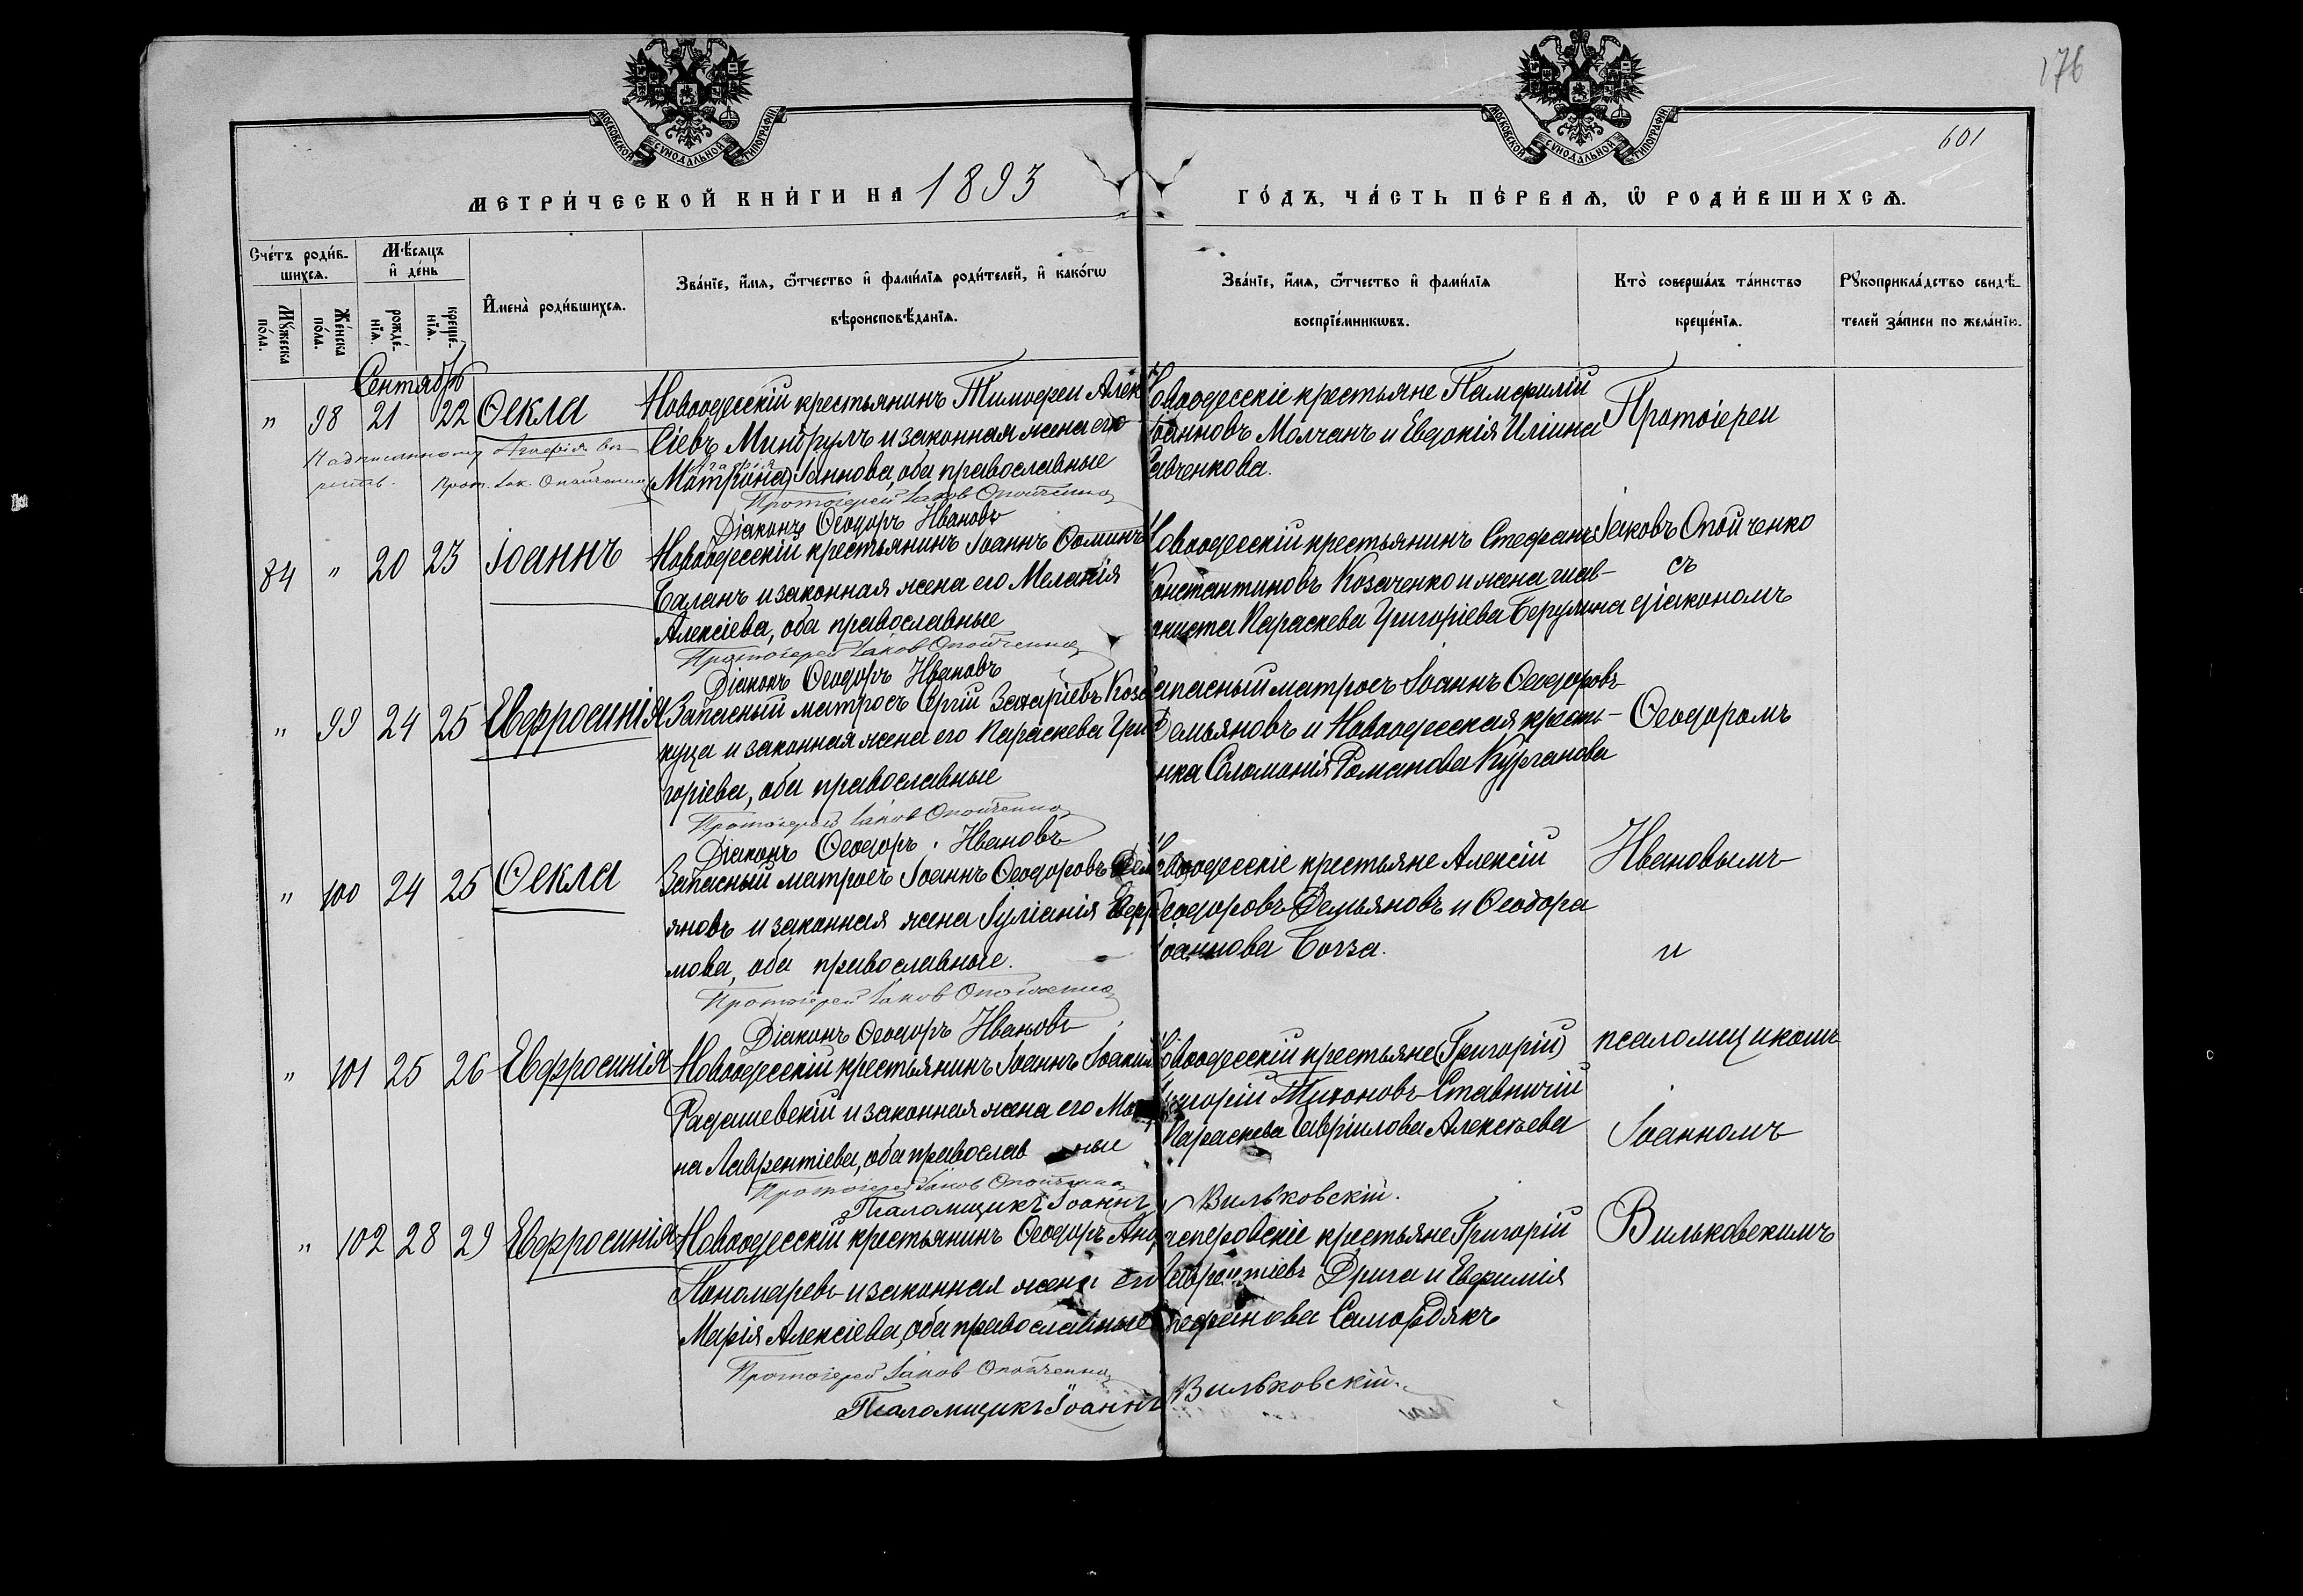 176
601
МОСКОВСКОЙ СУНОДАЛЬНОЙ ТИПОГРАФІИ
МОСКОВСКОЙ СУНОДАЛЬНОЙ ТИПОГРАФІИ
МЕТРИ́ЧЕСКОЙ КНИ́ГИ НА 1893
ГО́ДЪ, ЧА́СТЬ ПЕ́РВАЯ, Ѡ РОДИ́ВШИХСЯ.
Сче́тъ роди́в-
шихся.
Му́жеска по́ла.
Же́нска по́ла.
Мѣ́сяцъ
и де́нь
рожде́-
нїя.
креще́-
нїя.
Имена̀ роди́вшихся.
Зва́нїе, и́мя, ѻ́тчество и фами́лїя роди́телей, и како́гѡ
вѣроисповѣ́данїя.
Зва́нїе, и́мя, ѻ́тчество и фами́лїя
воспрїе́мникѡвъ.
Кто̀ соверша́лъ та́инство
креще́нїя.
Рукоприкла́дство свидѣ́-
телей за́писи по жела́нїю.
Сентябрь
" 98 21 22 Ѳекла
Новоодесскій крестьянинъ Тимофей Алек
сіевъ Миндрулъ и законная жена его
Агафія
(Матрона) Іаннова, оба православные
Надписанному Агафія ве-
рить. Прот. Іак. Опойченко
Протоіерей Іаков Опойченко
Діаконъ Ѳеодоръ Ивановъ
Новоодесскіе крестьяне Памфилій
Іоанновъ Молчанъ и Евдокія Иліина
Савченкова.
Протоіерей
84 " 20 23 Іоаннъ
Новоодесскій крестьянинъ Іоаннъ Ѳоминъ
Баланъ и законная жена его Меланія
Алексіева, оба православные
Протоіерей Іаков Опойченко
Діаконъ Ѳеодоръ Ивановъ
Новоодесскій крестьянинъ Стефанъ
Константиновъ Козаченко и жена
Параскева Григоріева
Іаковъ Опойченко
съ
діакономъ
" 99 24 25 Евфросинія
Запасный матросъ Сергій Захаріевъ Коза
куца и законная жена его Параскева Гри
горіева, оба православные
Протоіерей Іаков Опойченко
Діаконъ Ѳеодоръ Ивановъ
Запасный матросъ Іоаннъ Ѳеодоровъ
Демьяновъ и Новоодесская кресть-
нка Соломонія Романова Курганова
Ѳеодоромъ
" 100 24 25 Ѳекла
Запасный матросъ Іоаннъ Ѳеодоровъ Демь
яновъ и законная жена Іуліанія Евфи
мова, оба православные.
Протоіерей Іаков Опойченко
Діаконъ Ѳеодоръ Ивановъ
Новоодесскіе крестьяне Алексій
Ѳеодоровъ Демьяновъ и Ѳеодора
Іоаннова
Ивановымъ
и
" 101 25 26 Евфросинія
Новоодесскій крестьянинъ Іоаннъ
Радашевскій и законная жена его
на Лаврентіева, оба православ ные
Протоіерей Іаков Опойченко
Псаломщикъ Іоаннъ Вильковскій.
Новоодесскій крестьяне (Григорій)
Григорій Тихоновъ Ставничій
Параскева Гавріилова Алексѣева
псаломщикомъ
Іоанномъ
" 102 28 29 Евфросинія
Новоодесскій крестьянинъ Ѳеодоръ
Пономаревъ и законная жена его
Марія Алексіева, оба православные
Протоіерей Іаков Опойченко
Псаломщикъ Іоаннъ Вильковскій.
крестьяне Григорій
Лаврентіевъ Дрига и Евфимія
Стефанова
Вильковскимъ